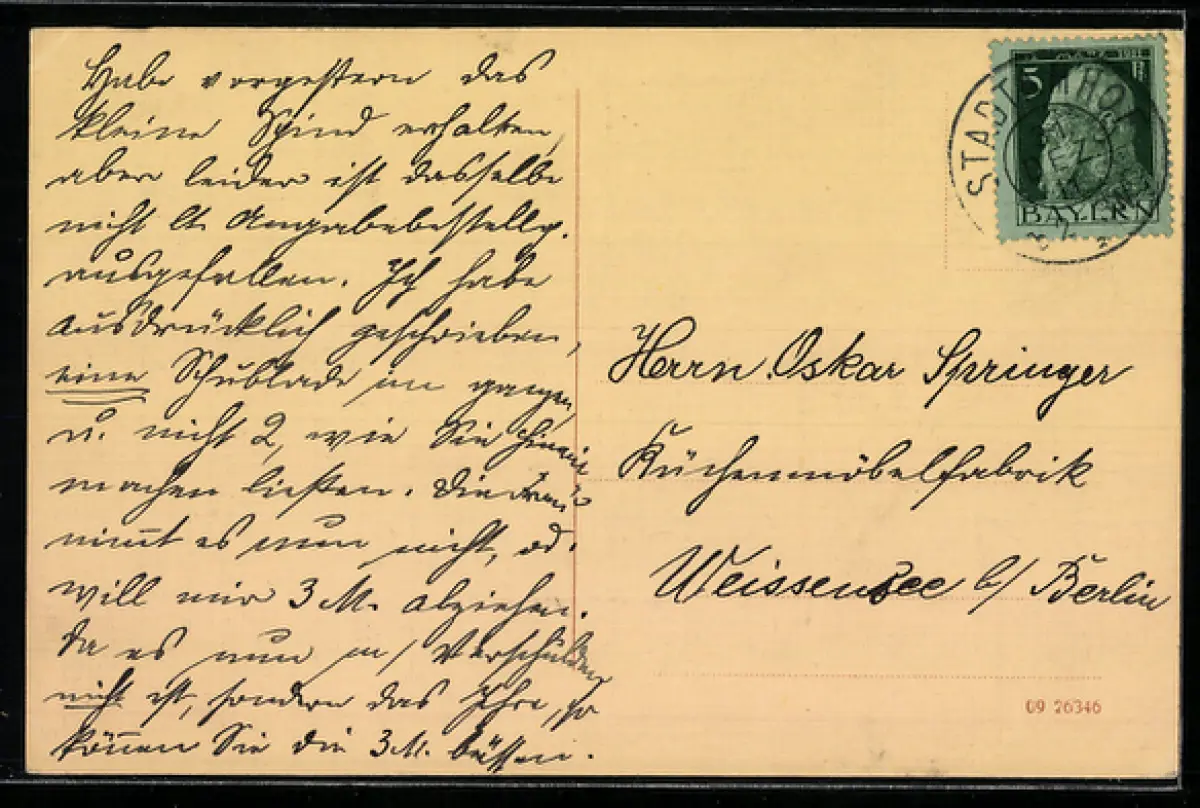 Habe vorgestern das
kleine Spind erhalten,
aber leider ist dasselbe
nicht lt. Angabebestellg.
ausgefallen. Ich habe
ausdrücklich geschrieben,
eine Schublade im ganzen
u. nicht 2, wie Sie hinein
machen ließen. Die
nim̅t es nun nicht, od.
will mir 3 M. abziehen.
Da es nun m/ Verschulden
nicht ist, sondern das Ihre, so
kön̅en Sie die 3 M. büssen.
5
1911
BAYERN
STADT
Herrn Oskar Springer
Küchenmöbelfabrik
Weissensee b/ Berlin
09 26346